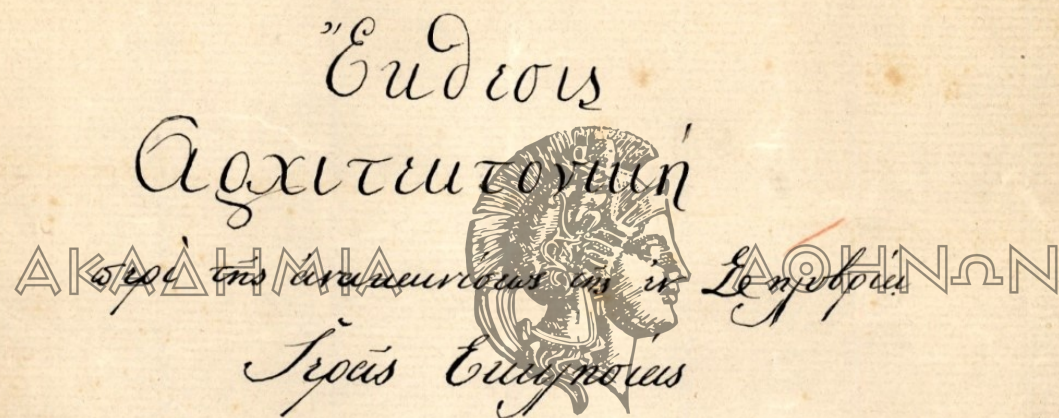 Ἔκθεσις
Αρχιτεκτονική
περὶ τῆς ἀνακαινίσεως τῆς ἐν Σηλυβρίᾳ
Ἱερᾶς Εκκλησίας
ΑΚΑΔΗΜΙΑ ΑΘΗΝΩΝ